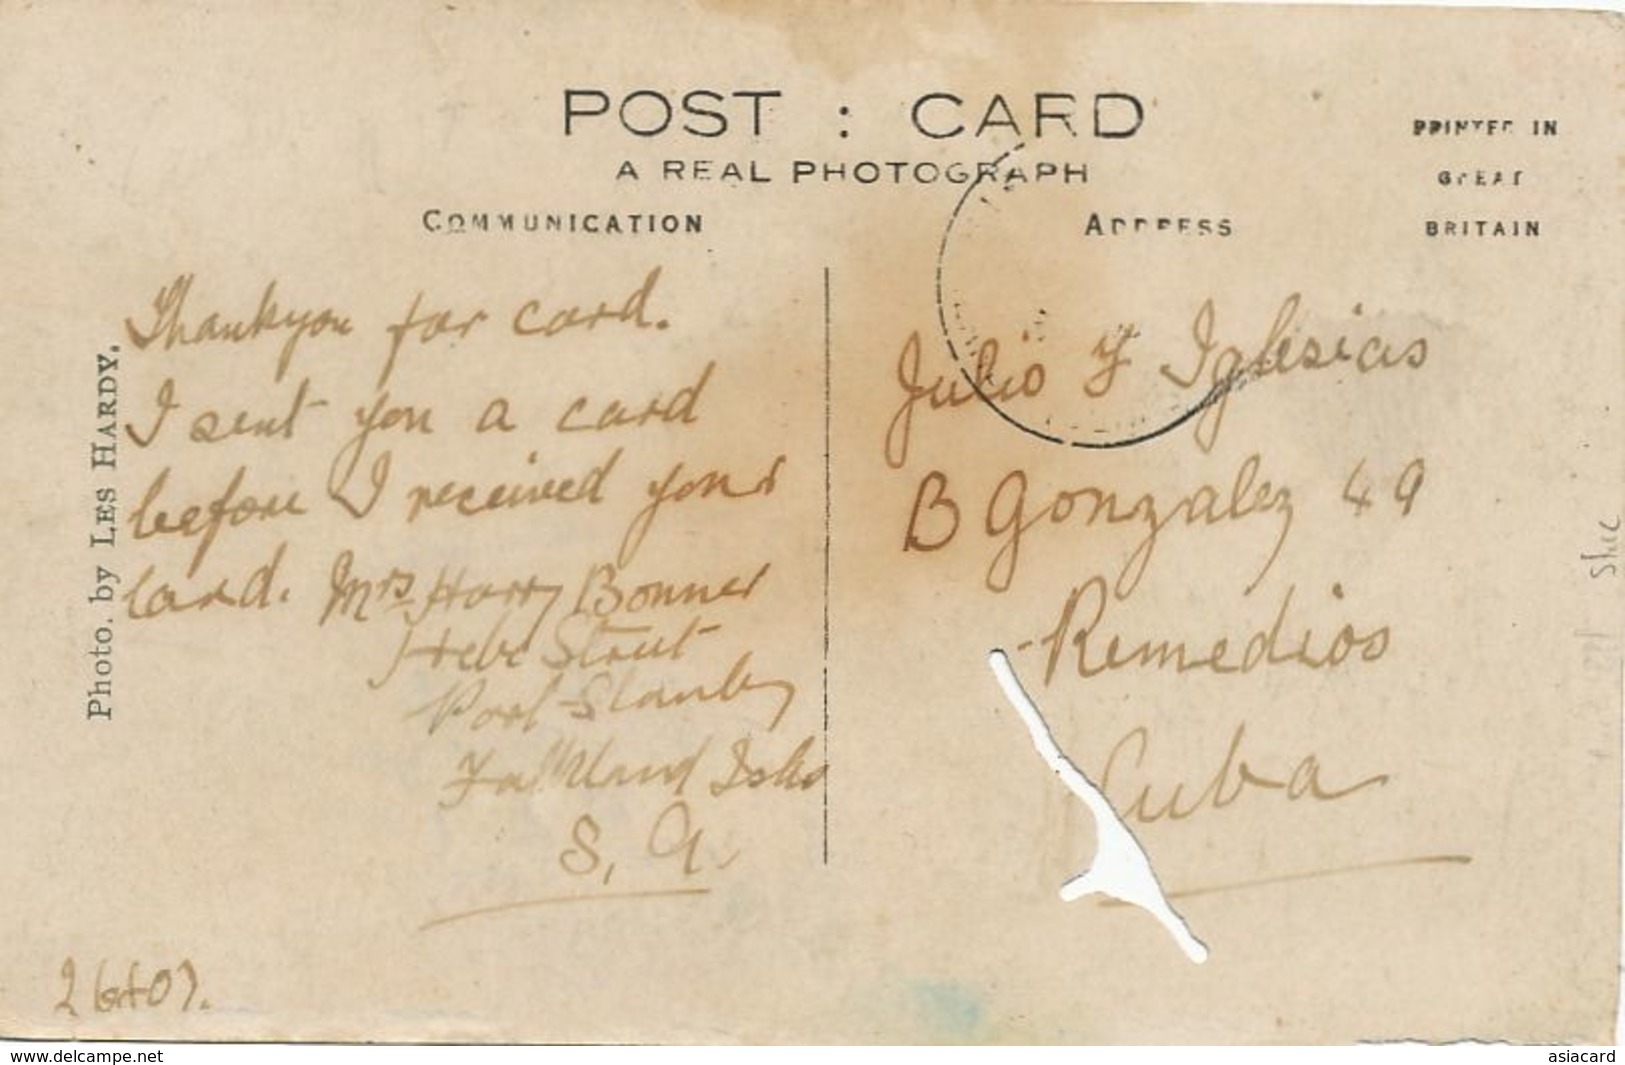 POST : CARD
A REAL PHOTOGRAPH
PRINTED IN
GREAT
BRITAIN
COMMUNICATION
ADDRESS
Photo. by LES HARDY.
Thankyou for card.
I sent you a card
before I received your
card. Mrs Harry Bonner
Hebe Street
Port Stanley
Falkland Islds
S. A.
Julio F Iglesias
B Gonzalez 49
Remedios
Cuba
www.delcampe.net
asiacard